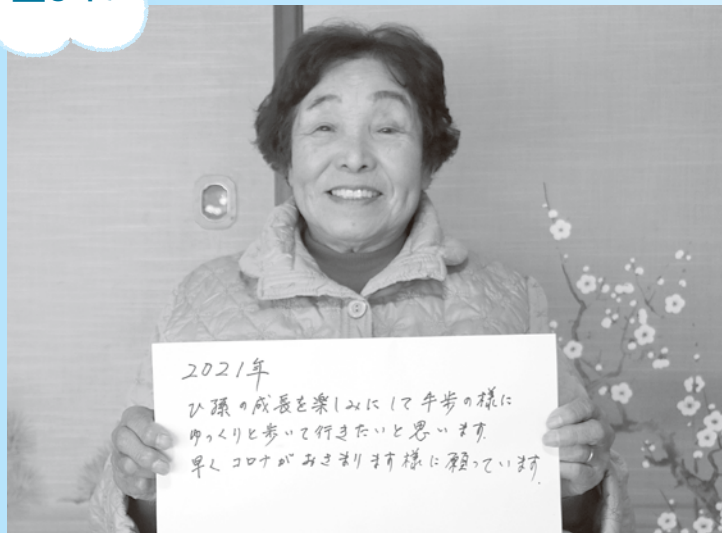 2021年
ひ孫の成長を楽しみにして牛歩の様に
ゆっくりと歩いて行きたいと思います.
早くコロナがおさまります様に願っています.